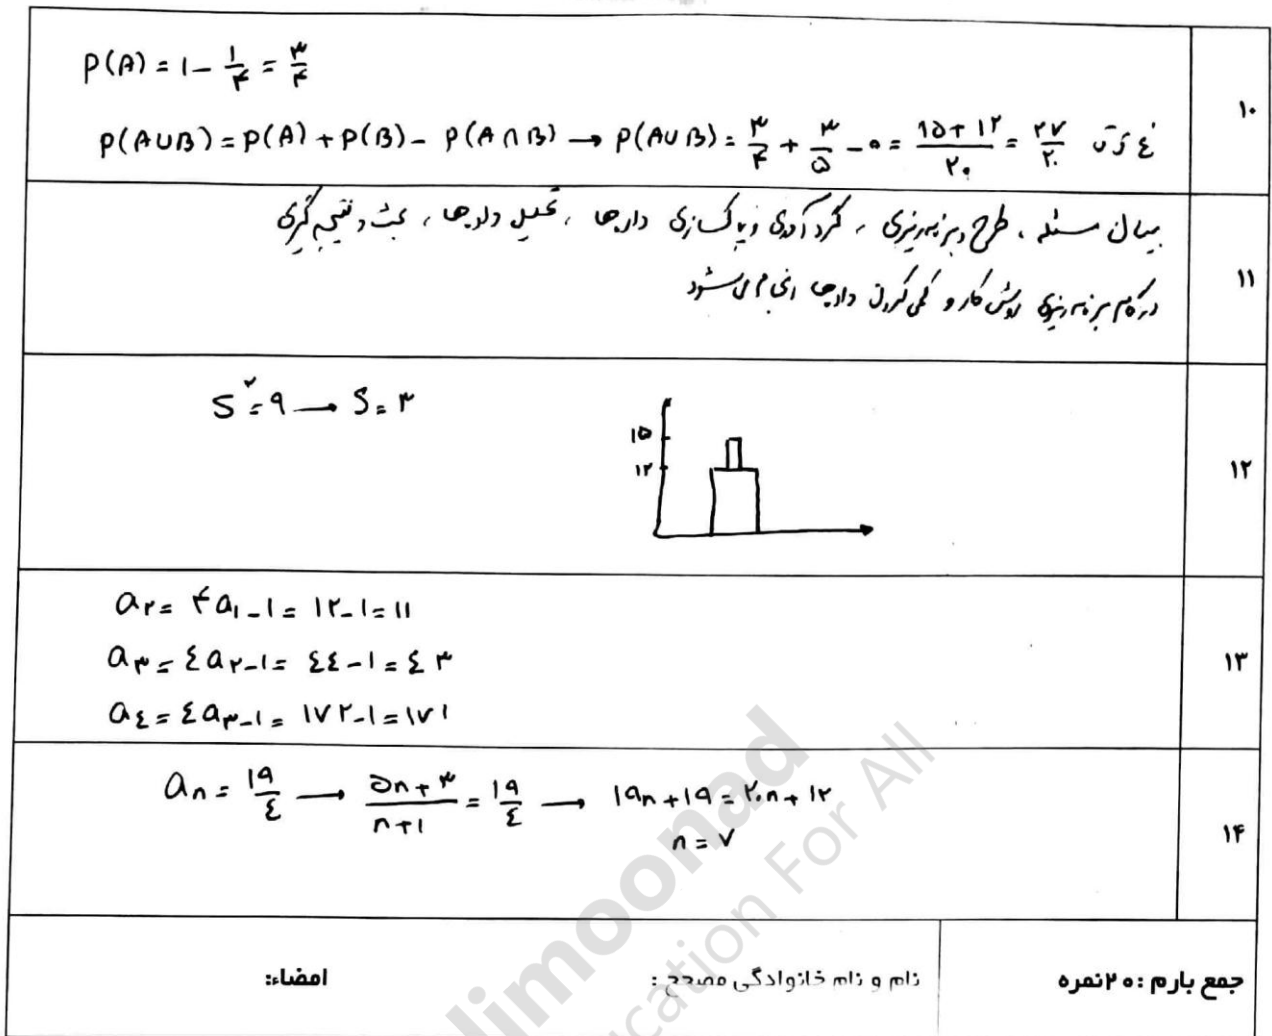 P(A) = ۱ - ۱/۴ = ۳/۴
۱۰
P(A∪B) = P(A) + P(B) - P(A∩B) → P(A∪B) = ۳/۴ + ۳/۵ - ۰ = ۱۵+۱۲/۲۰ = ۲۷/۲۰
بیان مسئله ، طرح و برنامه‌ریزی ، گردآوری و پاکسازی داده‌ها ، تحلیل داده‌ها ، بحث و نتیجه گیری
۱۱
در گام برنامه ریزی روش کار و کمی کردن داده‌ها انجام می‌شود
S²=۹ → S=۳
۱۵
۱۲
۱۲
a۲ = ۴a۱-۱ = ۱۲-۱ = ۱۱
a۳ = ٤a۲-۱ = ٤٤-۱ = ٤۳
۱۳
a٤ = ٤a۳-۱ = ۱۷۲-۱ = ۱۷۱
an = ۱۹/٤ → ۵n+۳/n+۱ = ۱۹/٤ → ۱۹n+۱۹ = ۲۰n+۱۲
n = ۷
۱۴
جمع بارم : ۲۰ نمره
نام و نام خانوادگی مصحح :
امضاء:
limoonad
cation For All